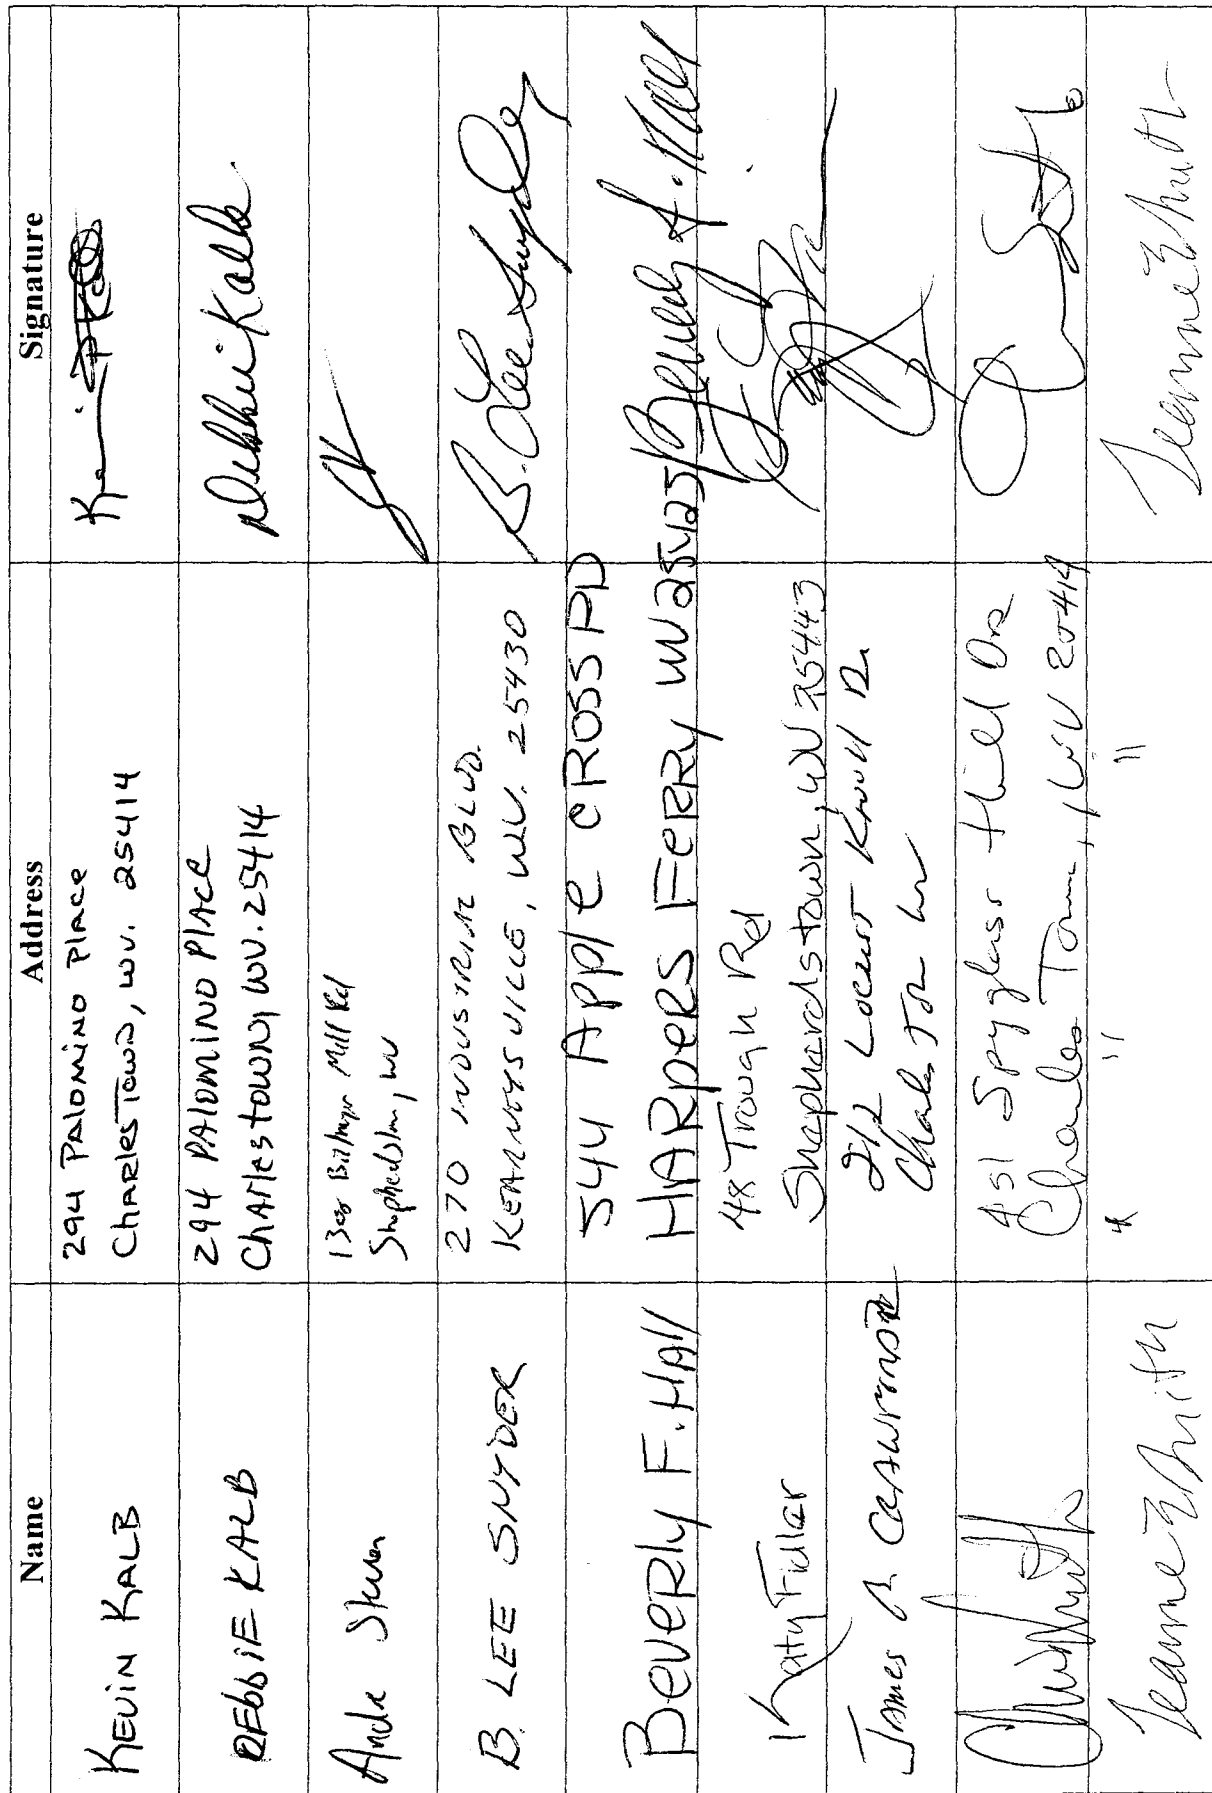 Name Address Signature
KEVIN KALB
294 PALOMINO PLACE
CHARLES TOWN, WV. 25414
DEbbiE KALB
294 PALOMINO PLACE
Charlestown, WV. 25414
Debbie Kalb
Mill Rd
B. LEE SNYDER
270 INDUSTRIAL BLVD.
KEARNEYSVILLE, WV. 25430
B. Lee Snyder
Beverly F. HAll
544 Apple CROSS RD
HARpers FERRY WV 25425
Beverly F. Hall
Katy Fidler
48 Trough Rd
Shephardstown, WV 25443
James
212 Locust Knoll Dr
Charles Town WV
451 Spyglass Hill Dr
Charles Town, WV
Jeanne Smith
" " "
Jeanne Smith